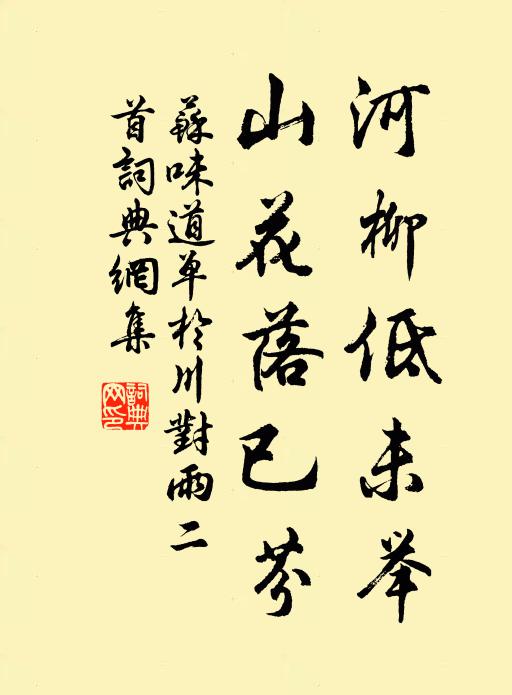 河柳低未举
山花落已芬
蘇味道单於川對雨二
首詞典網集
詞典
网印